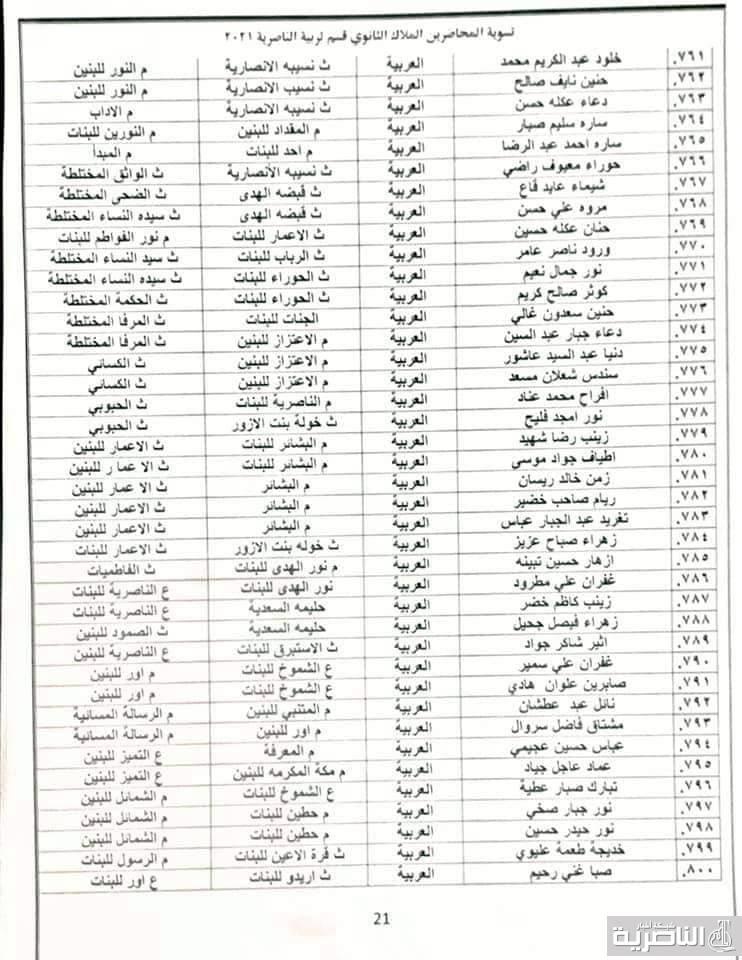 تسوية المحاضرين الملاك الثانوي قسم تربية الناصرية ٢٠٢١
٧٦١. خلود عبد الكريم محمد العربية ث نسيبه الانصارية م النور للبنين
٧٦٢. حنين نايف صالح العربية ث نسيب الانصارية م النور للبنين
٧٦٣. دعاء عكله حسن العربية ث نسيبه الانصارية م الاداب
٧٦٤. ساره سليم صبار العربية م المقداد للبنين م النورين للبنات
٧٦٥. ساره احمد عبد الرضا العربية م احد للبنات م المبدأ
٧٦٦. حوراء معيوف راضي العربية ث نسيبه الأنصارية ث الواثق المختلطة
٧٦٧. شيماء عايد قاع العربية ث قبضه الهدى ث الضحى المختلطة
٧٦٨. مروه علي حسن العربية ث قبضه الهدى ث سيده النساء المختلطة
٧٦٩. حنان عكله حسين العربية ث الاعمار للبنات م نور الفواطم للبنات
٧٧٠. ورود ناصر عامر العربية ث الرباب للبنات ث سيد النساء المختلطة
٧٧١. نور جمال نعيم العربية ث الحوراء للبنات ث سيده النساء المختلطة
٧٧٢. كوثر صالح كريم العربية ث الحوراء للبنات ث الحكمة المختلطة
٧٧٣. حنين سعدون غالي العربية الجنات للبنات ث المرفأ المختلطة
٧٧٤. دعاء جبار عبد السين العربية م الاعتزاز للبنين ث المرفأ المختلطة
٧٧٥. دنيا عبد السيد عاشور العربية م الاعتزاز للبنين ث الكسائي
٧٧٦. سندس شعلان مسعد العربية م الاعتزاز للبنين ث الكسائي
٧٧٧. افراح محمد عناد العربية م الناصرية للبنات ث الحبوبي
٧٧٨. نور امجد فليح العربية ث خولة بنت الازور ث الحبوبي
٧٧٩. زينب رضا شهيد العربية م البشائر للبنات ث الاعمار للبنين
٧٨٠. اطياف جواد موسى العربية م البشائر للبنات ث الاعما ر للبنين
٧٨١. زمن خالد ريسان العربية م البشائر ث الا عمار للبنين
٧٨٢. ريام صاحب خضير العربية م البشائر ث الا عمار للبنين
٧٨٣. تغريد عبد الجبار عباس العربية م البشائر ث الاعمار للبنين
٧٨٤. زهراء صباح عزيز العربية ث خوله بنت الازور ث الاعمار للبنات
٧٨٥. ازهار حسين تبينه العربية م نور الهدى للبنات ث الفاطميات
٧٨٦. غفران علي مطرود العربية نور الهدى للبنات ع الناصرية للبنات
٧٨٧. زينب كاظم خضر العربية حليمه السعدية ع الناصرية للبنات
٧٨٨. زهراء فيصل جحيل العربية حليمه السعدية ث الصمود للبنين
٧٨٩. اثير شاكر جواد العربية ث الاستبرق للبنات ع الناصرية للبنين
٧٩٠. غفران علي سمير العربية ع الشموخ للبنات م اور للبنين
٧٩١. صابرين علوان هادي العربية ع الشموخ للبنات م اور للبنين
٧٩٢. نائل عبد عطشان العربية م المتنبي للبنين م الرسالة المسائية
٧٩٣. مشتاق فاضل سروال العربية م اور للبنين م الرسالة المسائية
٧٩٤. عباس حسين عجيمي العربية م المعرفة ع التميز للبنين
٧٩٥. عماد عاجل جياد العربية م مكة المكرمه للبنين ع التميز للبنين
٧٩٦. تبارك صبار عطية العربية ع الشموخ للبنات م الشمائل للبنين
٧٩٧. نور جبار صخي العربية م حطين للبنات م الشمائل للبنين
٧٩٨. نور حيدر حسين العربية م حطين للبنات م الشمائل للبنين
٧٩٩. خديجة طعمة عليوي العربية ث قرة الاعين للبنات م الرسول للبنات
٨٠٠. صبا غني رحيم العربية ث اريدو للبنات ع اور للبنات
21
شبكة اخبار
الناصرية